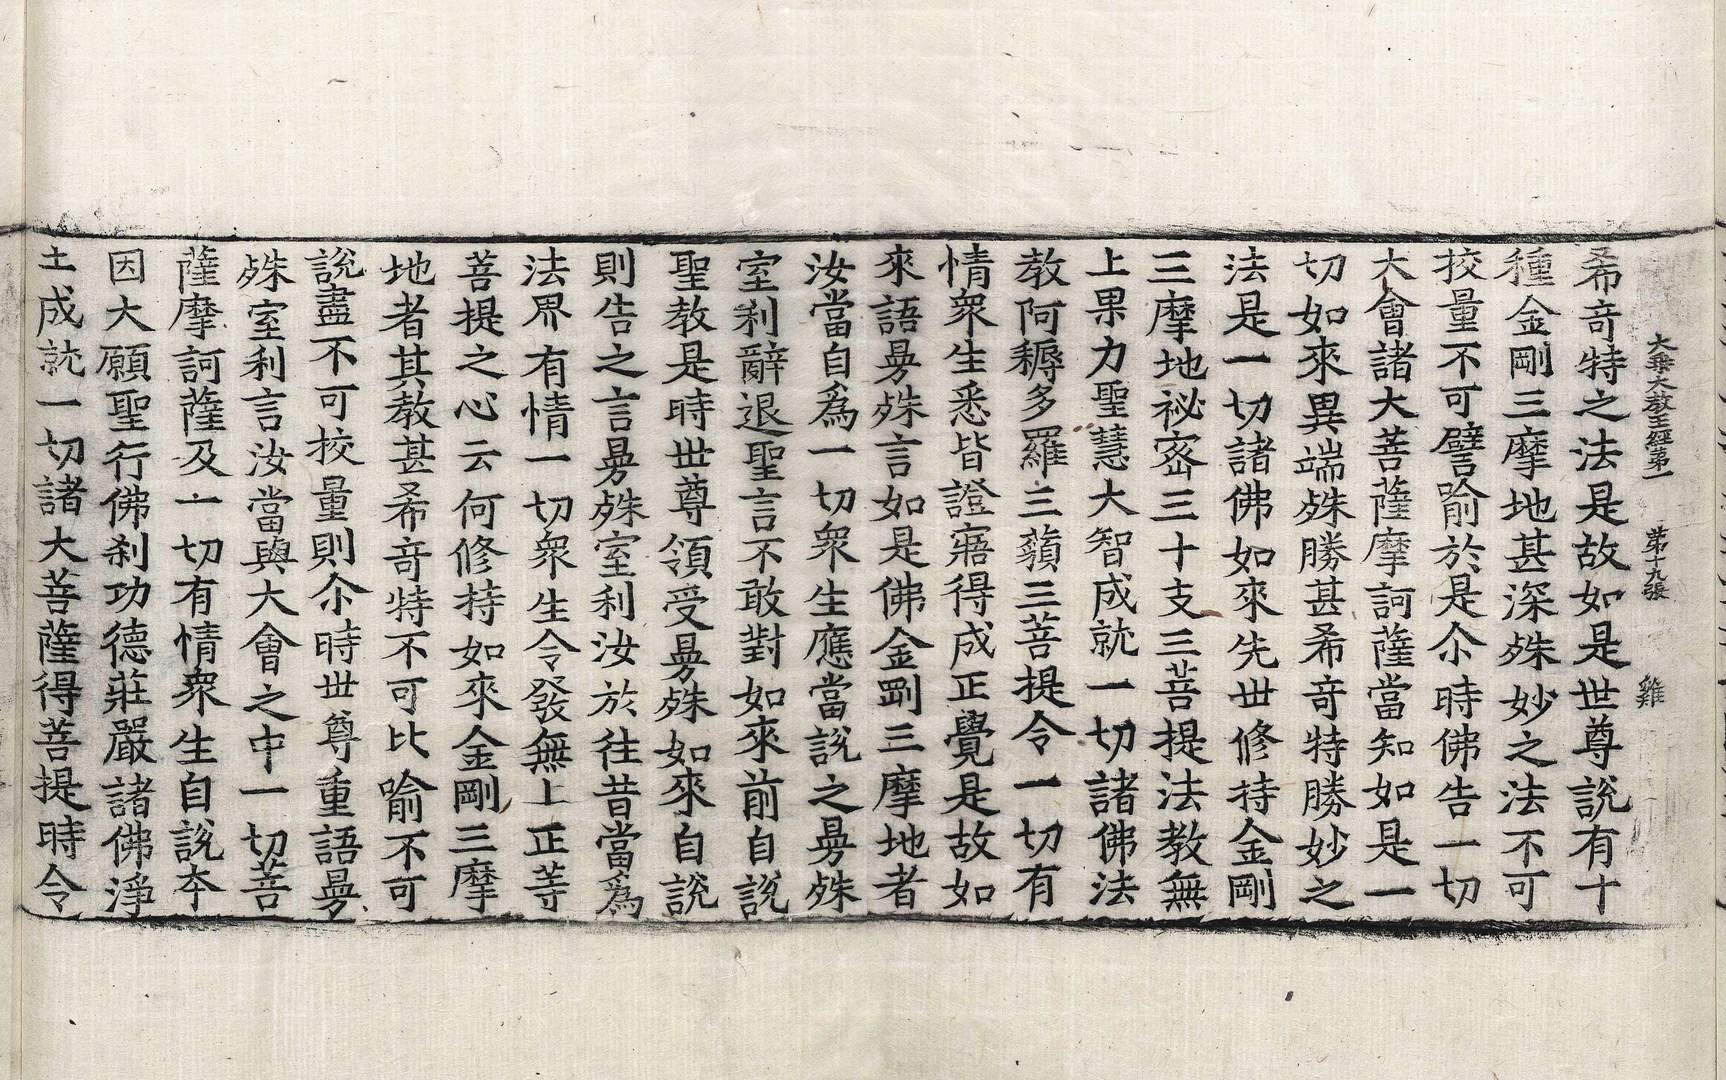 大乗大教王經第一　第十九張　雞
希竒特之法是故如是世尊說有十
種金剛三摩地甚深殊妙之法不可
挍量不可譬喻於是尒時佛告一切
大會諸大菩薩摩訶薩當知如是一
切如來異端殊勝甚希竒特勝妙之
法是一切諸佛如來先世修持金剛
三摩地祕密三十支三菩提法教無
上果力聖慧大智成就一切諸佛法
教阿耨多羅三藐三菩提令一切有
情衆生悉皆證寤得成正覺是故如
來語曼殊言如是佛金剛三摩地者
汝當自為一切衆生應當說之曼殊
室利辭退聖言不敢對如來前自說
聖教是時世尊領受曼殊如來自說
則告之言曼殊室利汝於往昔當為
法界有情一切衆生令發無上正等
菩提之心云何修持如來金剛三摩
地者其教甚希竒特不可比喻不可
說盡不可挍量則尒時世尊重語曼
殊室利言汝當與大會之中一切菩
薩摩訶薩及一切有情衆生自說夲
因大願聖行佛刹功德莊嚴諸佛淨
土成就一切諸大菩薩得菩提時令